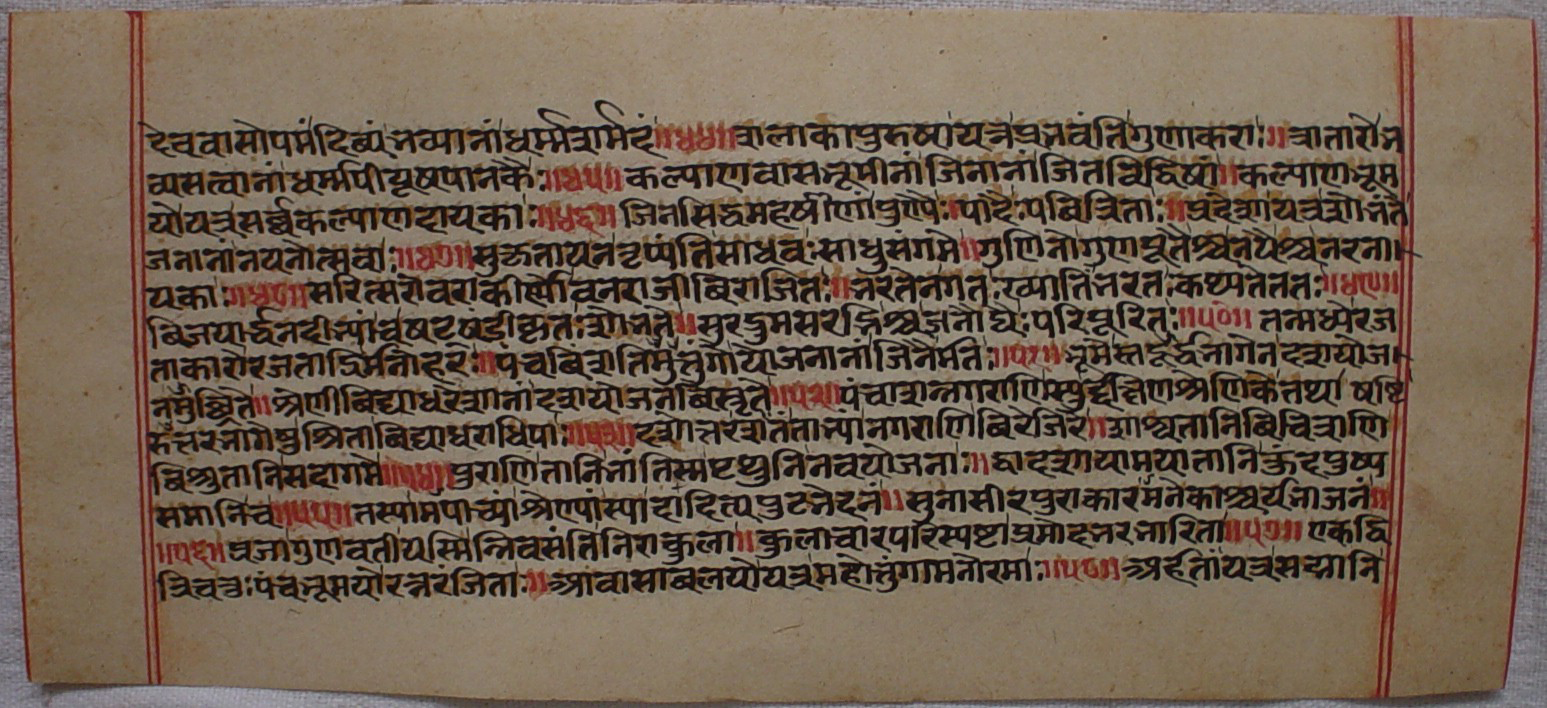 देववासोपमं दिव्यं भव्यानां धर्म्मशर्मदं ॥४४॥ शलाकापुरुषा यत्र प्रभवंति गुणाकराः ॥ त्रातारो भ
व्यसत्वानां धर्म्मपीयूषपानकैः ॥४५॥ कल्याणवासभूमीनां जिनानां जितविद्विषां ॥ कल्याणभूम
यो यत्र सर्व्वकल्याणदायकाः ॥४६॥ जिनसिद्धमहर्षीणां पुण्यैः पादैः पवित्रिताः ॥ प्रदेशा यत्र शोभंते
जनानां नयनोत्सवाः ॥४७॥ सुकृताय न तृप्यंति साधवः साधुसंगमे ॥ गुणिनो गुणपूतैश्च नयैश्च नरना
यकाः ॥४८॥ सरित्सरोवराकीर्णो वनराजीविराजितः ॥ भरतेन गतः ख्यातिं भरतः कथ्यते ततः ॥४९॥
विजयार्द्धनदीभ्यां च षट्षंडीकृतः शोभते ॥ सुरद्रुमसरद्भिश्च जनौघैः परिपूरितः ॥५०॥ तन्मध्ये रज
ताकारो रजताद्रिर्मनोहरः ॥ पंचविंशतिमुत्तुंगो योजनानां जिनैर्मतः ॥५१॥ भूमेस्तदूर्द्धभागेन दशयोज
नमुच्छ्रिते ॥ श्रेणी विद्याधरेशानां दशयोजनविस्तृते ॥५२॥ पंचाशन्नगराणि स्युर्द्दक्षिणश्रेणिके तथा षष्टि
रुत्तरभागेषु श्रिता विद्याधराधिपाः ॥५३॥ दशोत्तरशतं ताभ्यां नगराणि विरेजिरे ॥ शाश्वतानि विचित्राणि
विश्रुतानि सदागमे ॥५४॥ पुराणि तानि नांति स्म पृथुनि नवयोजनाः ॥ द्वादशायामयातानि कुदपुष्प
समानि च ॥५५॥ तस्यामपाच्यां श्रेण्यां स्यादादित्यपुटभेदनं ॥ सुनासीरपुराकारमनेकाश्चर्यभाजनं ॥
॥५६॥ प्रजा गुणवती यस्मिन्निवसंति निराकुला ॥ कुलाचारपरिस्पष्टा प्रमोदभरभारिता ॥५७॥ एकद्वि
त्रिचतुः पंचभूमयो रत्नरंजिताः ॥ आवासावलयो यत्र महोत्तुंगा मनोरमाः ॥५८॥ अर्हतां यत्र सद्मानि